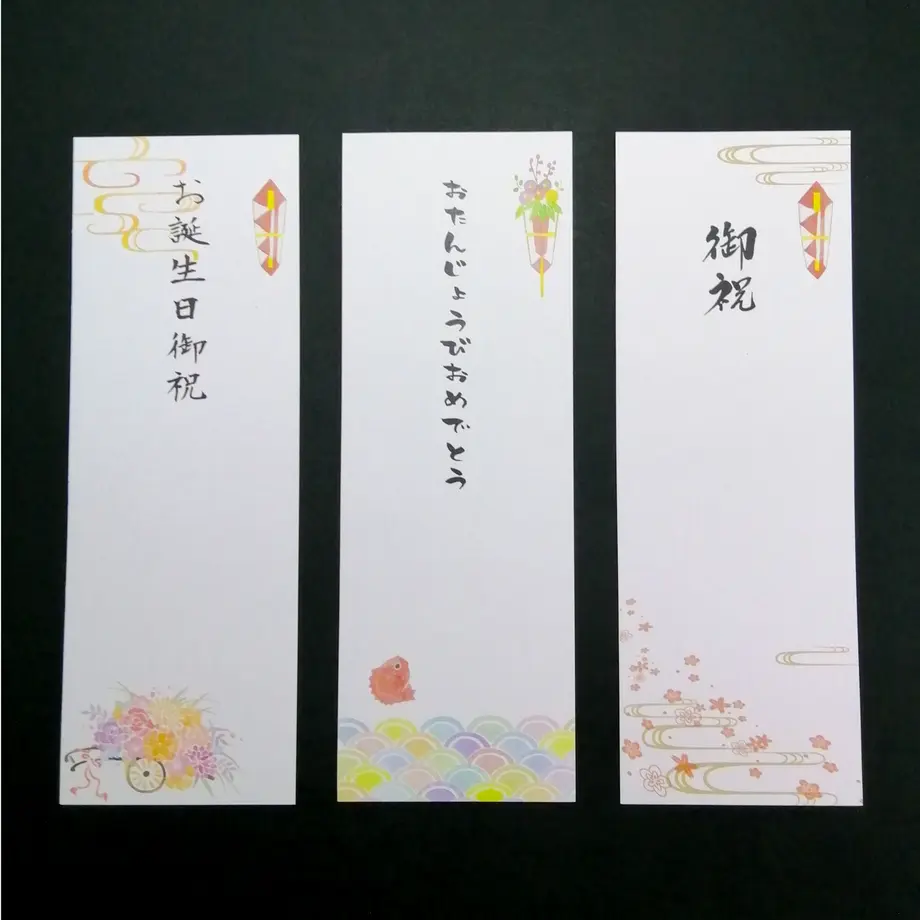 お誕生日御祝
おたんじょうびおめでとう
御祝